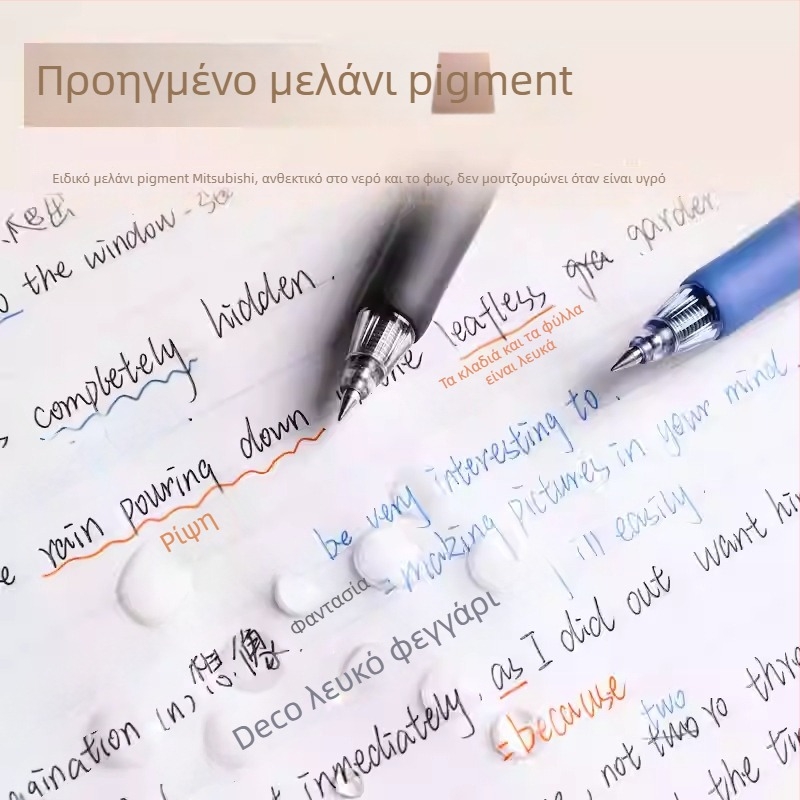 Προηγμένο μελάνι pigment
Ειδικό μελάνι pigment Mitsubishi, ανθεκτικό στο νερό και το φως, δεν μουτζουρώνει όταν είναι υγρό
the window -
completely hidden.
leafless
garden
Τα κλαδιά και τα φύλλα
είναι λευκά
rain pouring down
the
Ρίψη
be very interesting to
= making pictures in your mind.
I'll easily.
Φαντασία
想像
Deco λευκό φεγγάρι
immediately, as I did out want
= because
two
not two
the